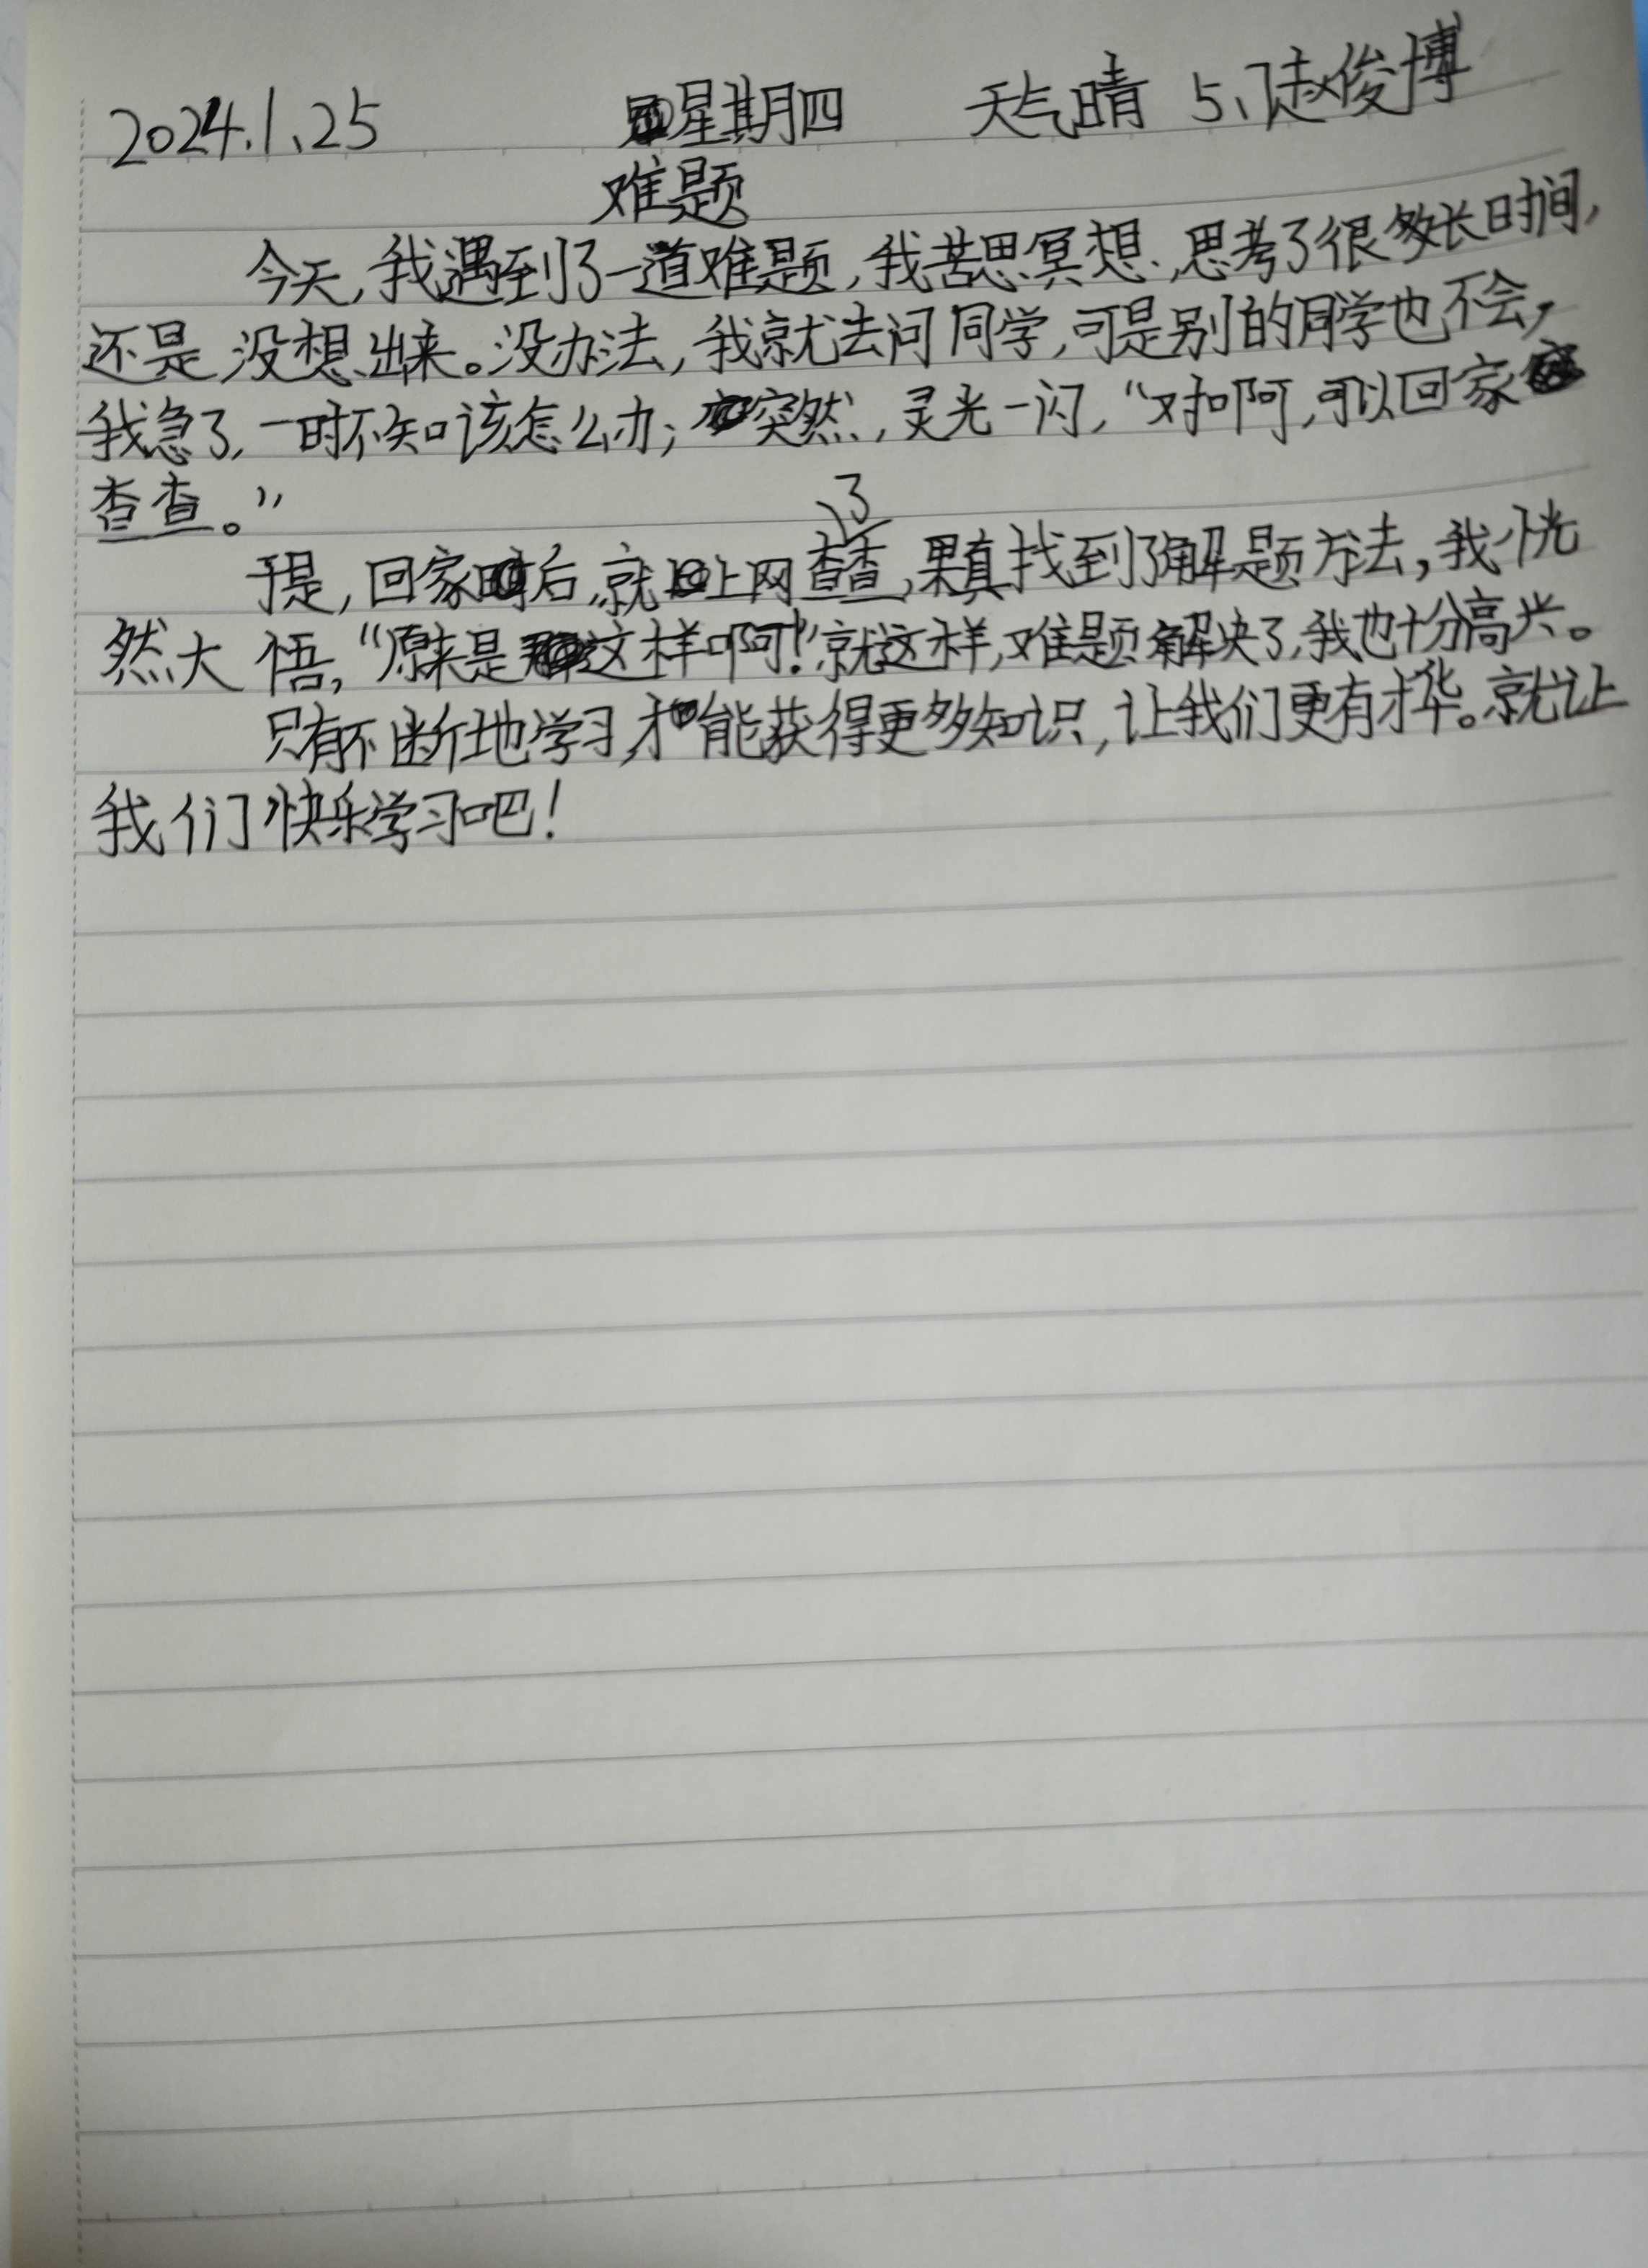 2024.1.25 星期四 天气晴 5.1赵俊博
难题
今天,我遇到了一道难题,我苦思冥想,思考了很长时间,
还是没想出来。没办法,我就去问同学,可是别的同学也不会,
我急了,一时不知该怎么办;突然,灵光一闪,“对啊,可以回家
查查。”
于是,回家后,就上网查了查,果真找到了解题方法,我恍
然大悟,“原来是这样啊!”就这样,难题解决了,我也十分高兴。
只有不断地学习,才能获得更多知识,让我们更有才华。就让
我们快乐学习吧!